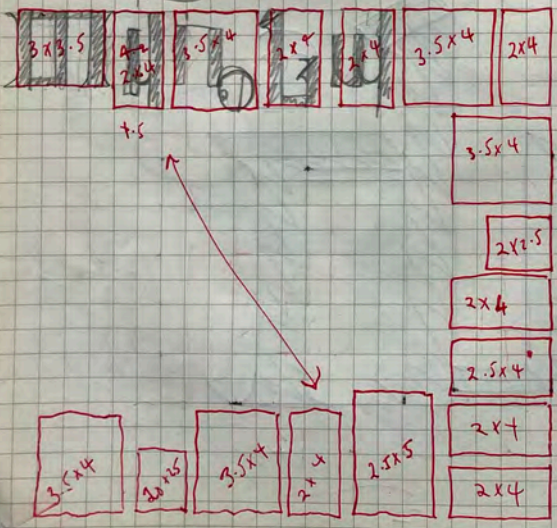 3 x 3.5
2 x 4
3.5 x 4
2 x 4
2 x 4
3.5 x 4
2 x 4
+.5
3.5 x 4
2 x 2.5
2 x 4
2.5 x 4
2 x 4
2 x 4
3.5 x 4
3.5 x 4
2 x 4
2.5 x 5